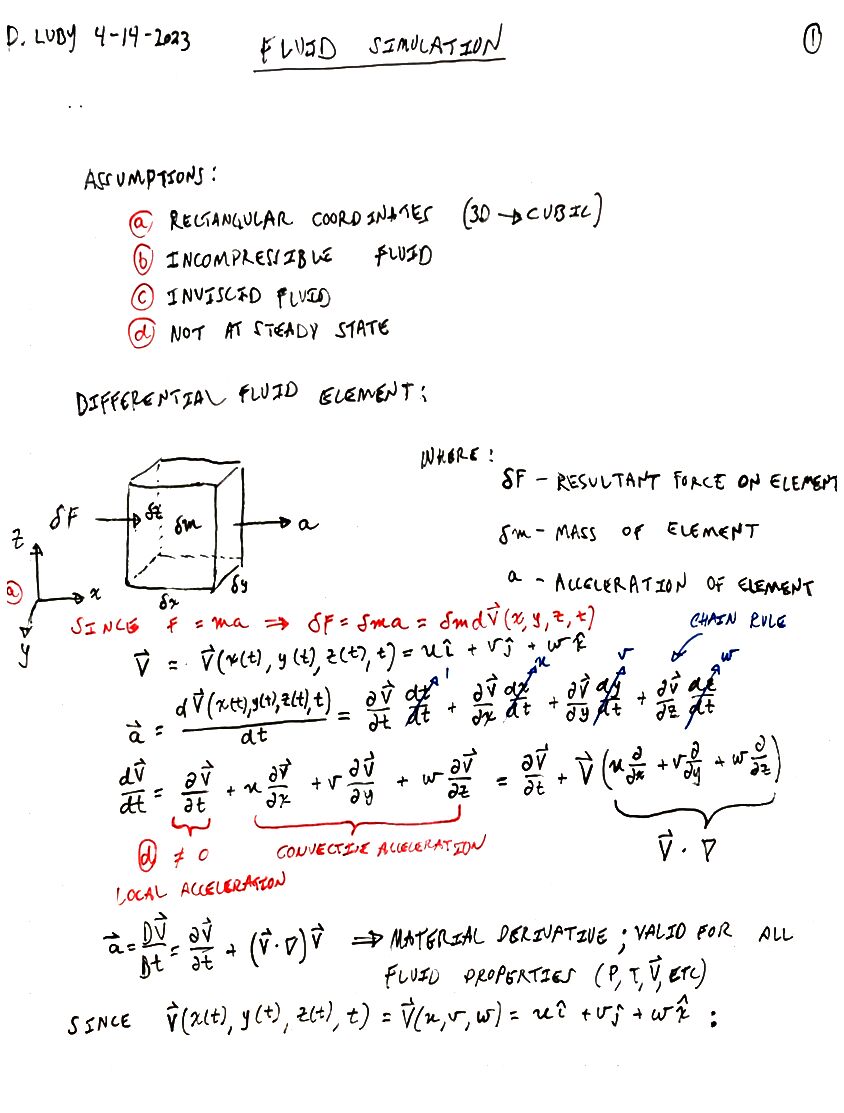 D. LUBY 4-14-2023 FLUID SIMULATION ①
ASSUMPTIONS:
ⓐ RECTANGULAR COORDINATES (3D → CUBIC)
ⓑ INCOMPRESSIBLE FLUID
ⓒ INVISCID FLUID
ⓓ NOT AT STEADY STATE
DIFFERENTIAL FLUID ELEMENT:
WHERE:
δF - RESULTANT FORCE ON ELEMENT
δm - MASS OF ELEMENT
a - ACCELERATION OF ELEMENT
δF → δz δm → a
z
ⓐ x δx δy
y
SINCE F = ma ⇒ δF = δma = δmdV⃗(x, y, z, t)
CHAIN RULE
V⃗ = V⃗(x(t), y(t), z(t), t) = uî + vĵ + wk̂
1 u v w
a⃗ = dV⃗(x(t), y(t), z(t), t)/dt = ∂V⃗/∂t dt/dt + ∂V⃗/∂x dx/dt + ∂V⃗/∂y dy/dt + ∂V⃗/∂z dz/dt
dV⃗/dt = ∂V⃗/∂t + u ∂V⃗/∂x + v ∂V⃗/∂y + w ∂V⃗/∂z = ∂V⃗/∂t + V⃗(u ∂/∂x + v ∂/∂y + w ∂/∂z)
ⓓ ≠ 0 CONVECTIVE ACCELERATION V⃗ · ∇
LOCAL ACCELERATION
a⃗ = DV⃗/Dt = ∂V⃗/∂t + (V⃗ · ∇)V⃗ ⇒ MATERIAL DERIVATIVE; VALID FOR ALL
FLUID PROPERTIES (P, T, V⃗, ETC)
SINCE V⃗(x(t), y(t), z(t), t) = V⃗(u, v, w) = uî + vĵ + wk̂ :